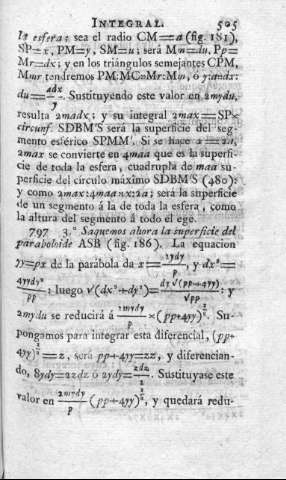 INTEGRAL. 505
la esfera: sea el radio CM=a (fig. 181),
SP=x, PM=y, SM=u; será Mm=du, Pp=
Mr=dx; y en los triángulos semejantes CPM,
Mmr tendremos PM:MC::Mr:Mm, ó y:a::dx:
du=adx/y. Sustituyendo este valor en 2mydu,
resulta 2madx; y su integral 2max=SP×
circunf. SDBM'S será la superficie del seg-
mento esférico SPMM'. Si se hace x=2a,
2max se convierte en 4maa que es la superfi-
cie de toda la esfera, cuadrupla de maa su-
perficie del círculo máximo SDBM'S (480):
y como 2max:4maa::x:2a; será la superficie
de un segmento á la de toda la esfera, como
la altura del segmento á todo el ege.
797 3.º Saquemos ahora la superficie del
paraboloide ASB (fig. 186). La equacion
yy=px de la parábola da x=2ydy/p, y dx²=
4yydy²/pp: luego √(dx²+dy²)=dy√(pp+4yy)/√pp: y
2mydu se reducirá á 2mydy/p×(pp+4yy)^1/2. Su-
pongamos para integrar esta diferencial, (pp+
4yy)^1/2=z, será pp+4yy=zz, y diferencian-
do, 8ydy=2zdz ó 2ydy=zdz/2. Sustituyase este
valor en 2mydy/p (pp+4yy)^1/2, y quedará redu-